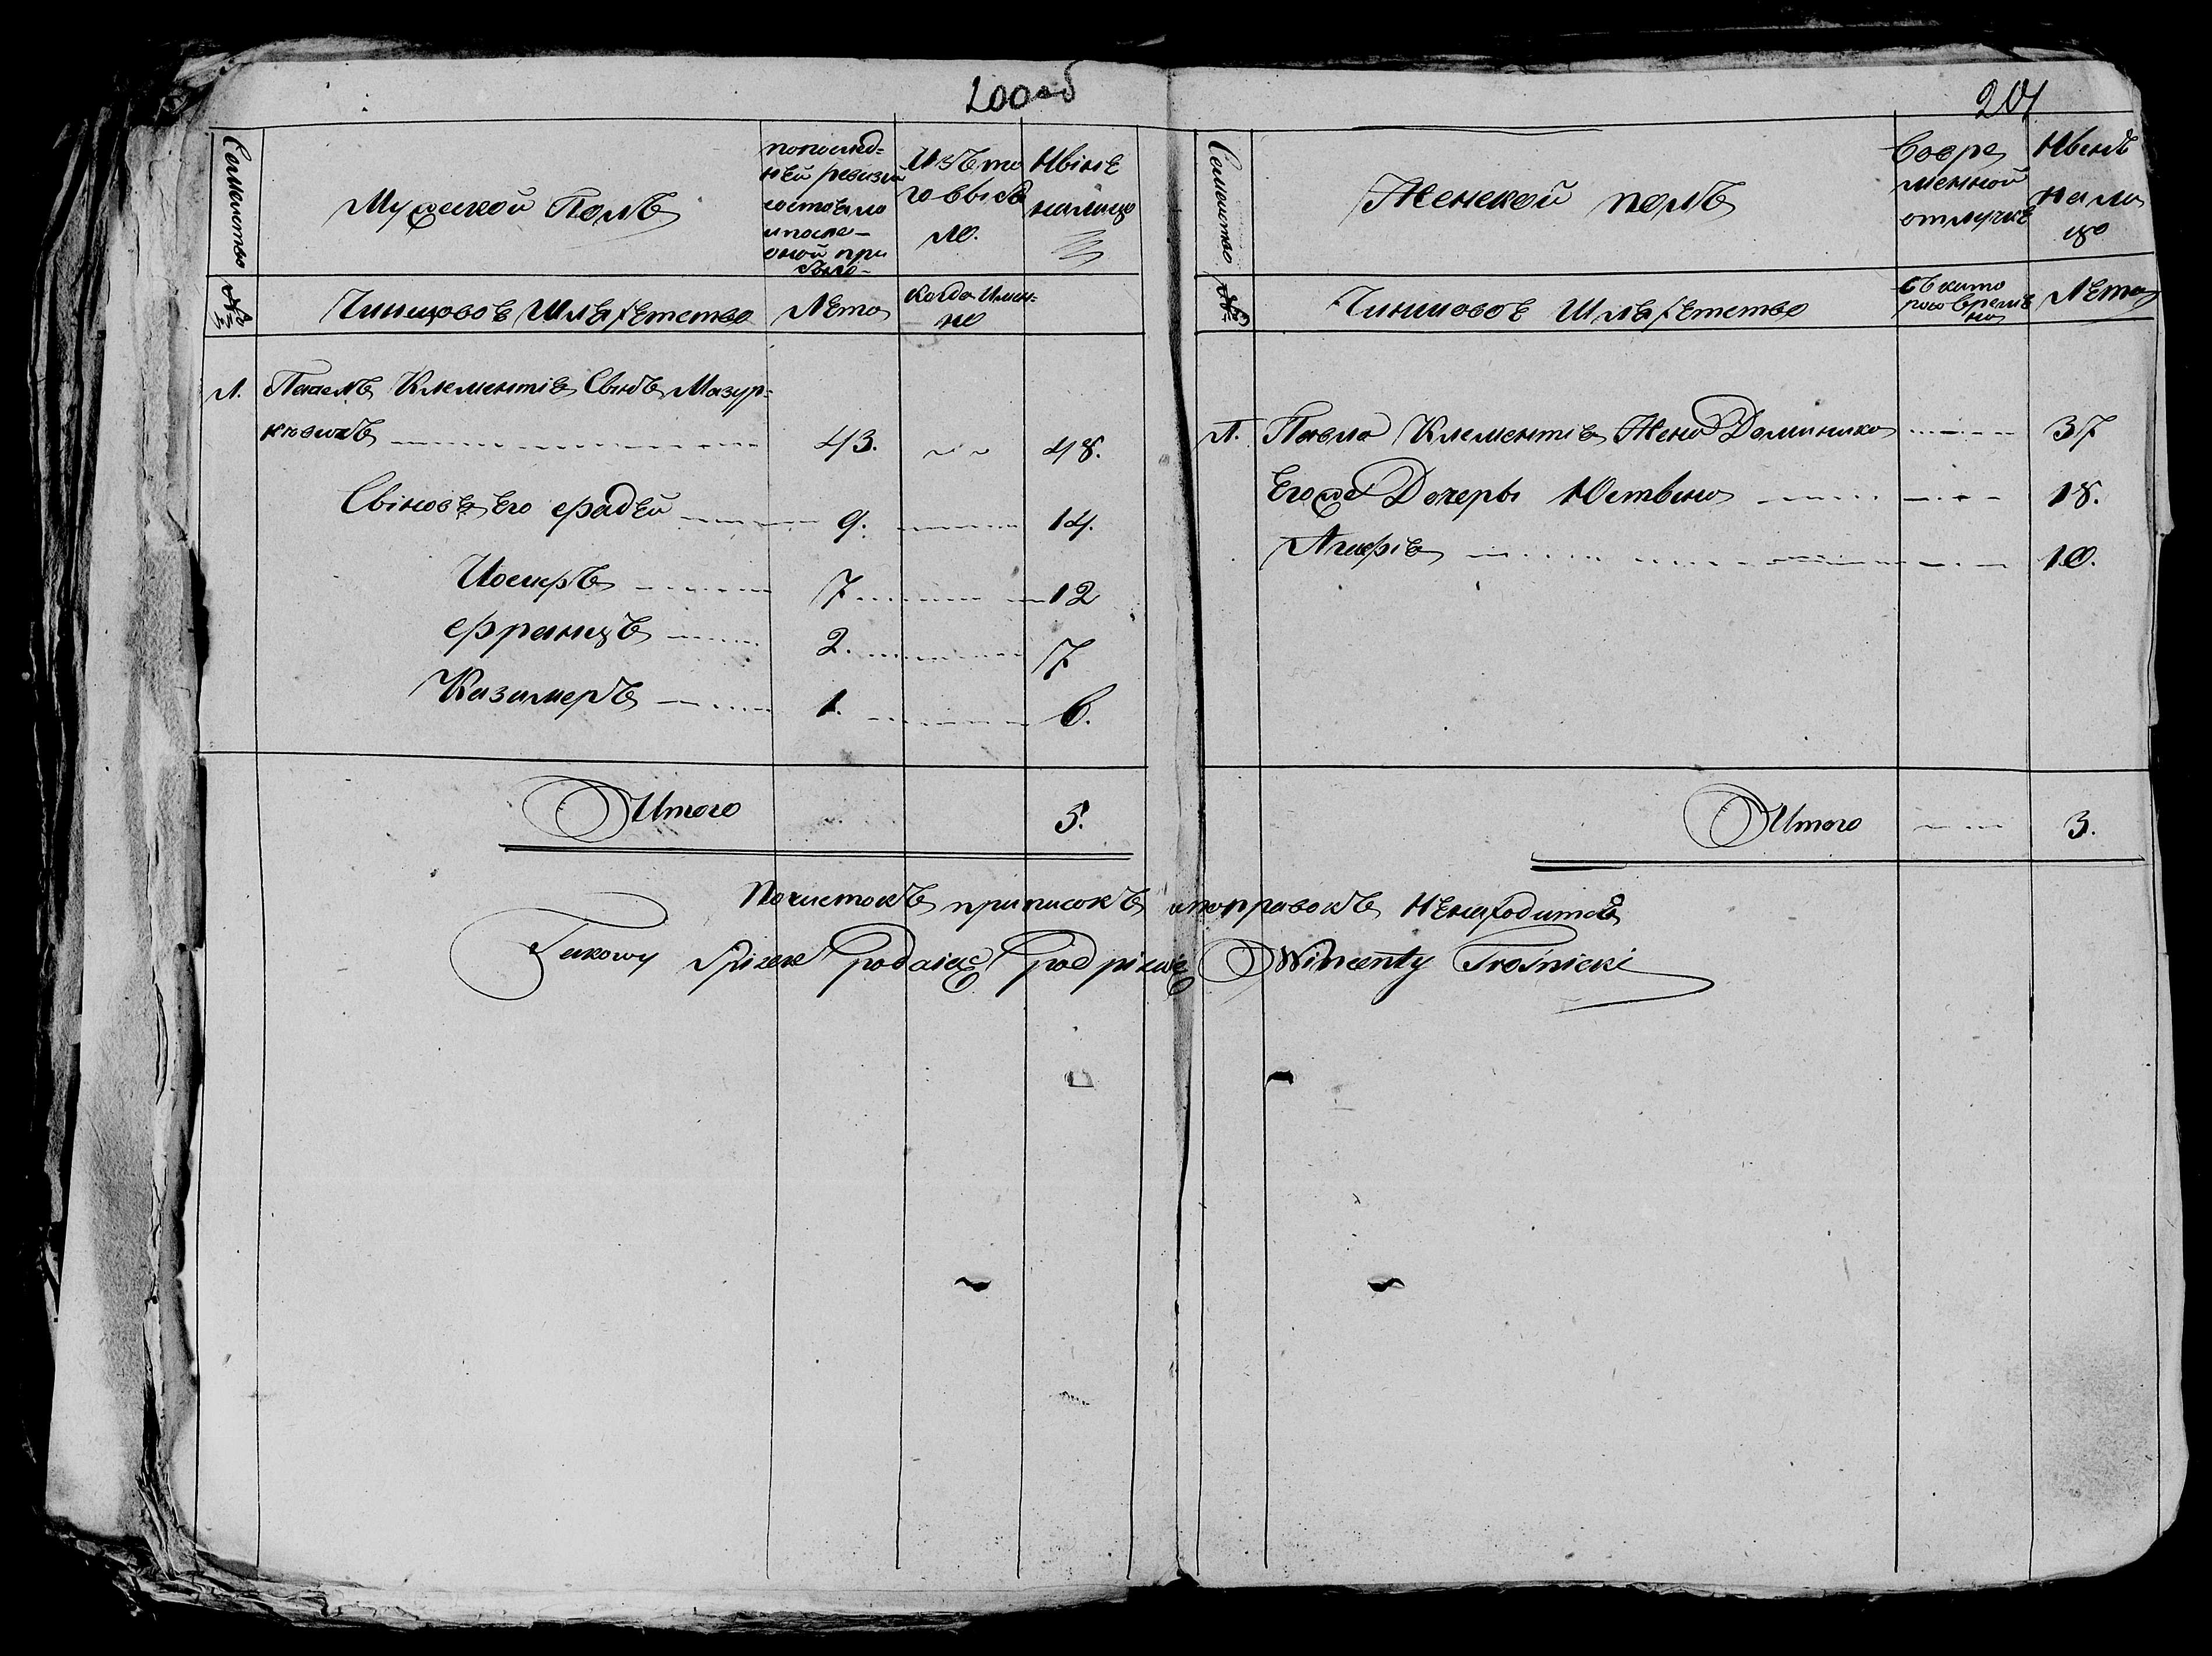 200 об
Семейство
Мужеской Полъ
попослед=
ней ревизіи
состояло
ипосле-
оной при
было-
Изъто
го выбы
ло.
Нынѣ
налицо
№
Чиншовоѣ Шляхѣтство
Лѣта
Когда Имен=
но
1. Павелъ Клементія Сынъ Мазур-
кѣвичъ 43. 48.
Сыновья Его Фадѣй 9. 14.
Иосифъ 7 12
Францъ 2. 7
Казимеръ 1. 6.
Итого 5.
201
Семейство
Женской полъ
Вовре
менной
отлучкѣ
Нынѣ
на ли
цо
№
Чиншовоѣ Шляхѣтство
съ кото
раго времѣ
ни
Лѣта
1. Павла Клементія Жена Доминика 37
Егоже Дочеры Юстына 18.
Анифія 10.
Итого 3.
Почистокъ приписокъ ипоправокъ Нѣнаходится
Takowy Spis podaiąc podpisuię Wincenty Trośnicki